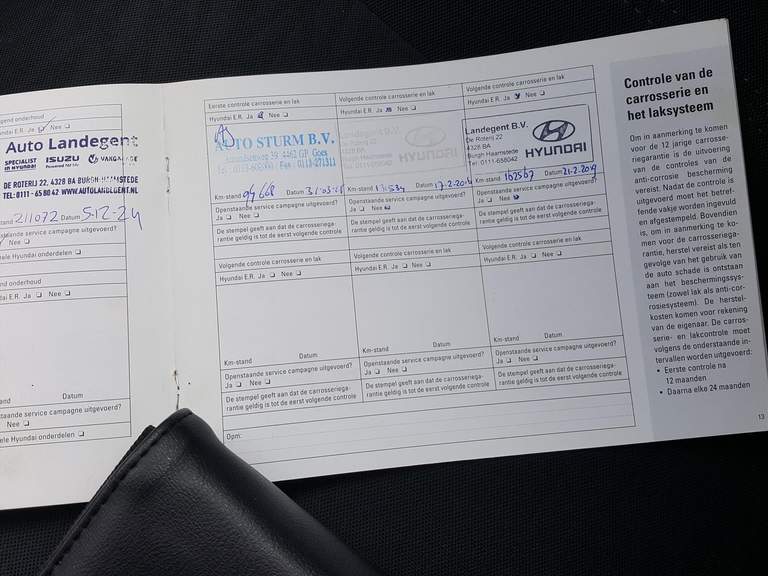 gend onderhoud
dai E.R. Ja Nee
Auto Landegent
SPECIALIST in HYUNDAI
ISUZU
DE ROTERIJ 22, 4328 BA BURGH-HAAMSTEDE
TEL: 0111 - 65 80 42 WWW.AUTOLANDEGENT.NL
stand 211072 Datum 5-12-24
staande service campagne uitgevoerd?
Nee
ele Hyundai onderdelen
nd onderhoud
dai E.R. Ja Nee
and Datum
staande service campagne uitgevoerd?
Nee
ele Hyundai onderdelen
Eerste controle carrosserie en lak
Hyundai E.R. Ja Nee
AUTO STURM B.V.
4462 GP Goes
Km-stand Datum
Openstaande service campagne uitgevoerd?
Ja Nee
De stempel geeft aan dat de carrosseriega-
rantie geldig is tot de eerst volgende controle
Volgende controle carrosserie en lak
Hyundai E.R. Ja Nee
Landegent B.V.
De Roterij 22
4328 BA
Burgh Haamstede
Tel. 0111-658042
HYUNDAI
Km-stand Datum
Openstaande service campagne uitgevoerd?
Ja Nee
De stempel geeft aan dat de carrosseriega-
rantie geldig is tot de eerst volgende controle
Volgende controle carrosserie en lak
Hyundai E.R. Ja Nee
Landegent B.V.
De Roterij 22
4328 BA
Burgh Haamstede
Tel. 0111-658042
HYUNDAI
Km-stand 162567 Datum 21-2-2019
Openstaande service campagne uitgevoerd?
Ja Nee
De stempel geeft aan dat de carrosseriega-
rantie geldig is tot de eerst volgende controle
Volgende controle carrosserie en lak
Hyundai E.R. Ja Nee
Km-stand Datum
Openstaande service campagne uitgevoerd?
Ja Nee
De stempel geeft aan dat de carrosseriega-
rantie geldig is tot de eerst volgende controle
Volgende controle carrosserie en lak
Hyundai E.R. Ja Nee
Km-stand Datum
Openstaande service campagne uitgevoerd?
Ja Nee
De stempel geeft aan dat de carrosseriega-
rantie geldig is tot de eerst volgende controle
Volgende controle carrosserie en lak
Hyundai E.R. Ja Nee
Km-stand Datum
Openstaande service campagne uitgevoerd?
Ja Nee
De stempel geeft aan dat de carrosseriega-
rantie geldig is tot de eerst volgende controle
Opm:
Controle van de
carrosserie en
het laksysteem
Om in aanmerking te komen
voor de 12 jarige carrosse-
riegarantie is de uitvoering
van de controles van de
anti-corrosie bescherming
vereist. Nadat de controle is
uitgevoerd moet het betref-
fende vakje worden ingevuld
en afgestempeld. Bovendien
is, om in aanmerking te ko-
men voor de carrosseriega-
rantie, herstel vereist als ten
gevolge van het gebruik van
de auto schade is ontstaan
aan het beschermingssys-
teem (zowel lak als anti-cor-
rosiesysteem). De herstel-
kosten komen voor rekening
van de eigenaar. De carros-
serie- en lakcontrole moet
volgens de onderstaande in-
tervallen worden uitgevoerd:
• Eerste controle na
12 maanden
• Daarna elke 24 maanden
13